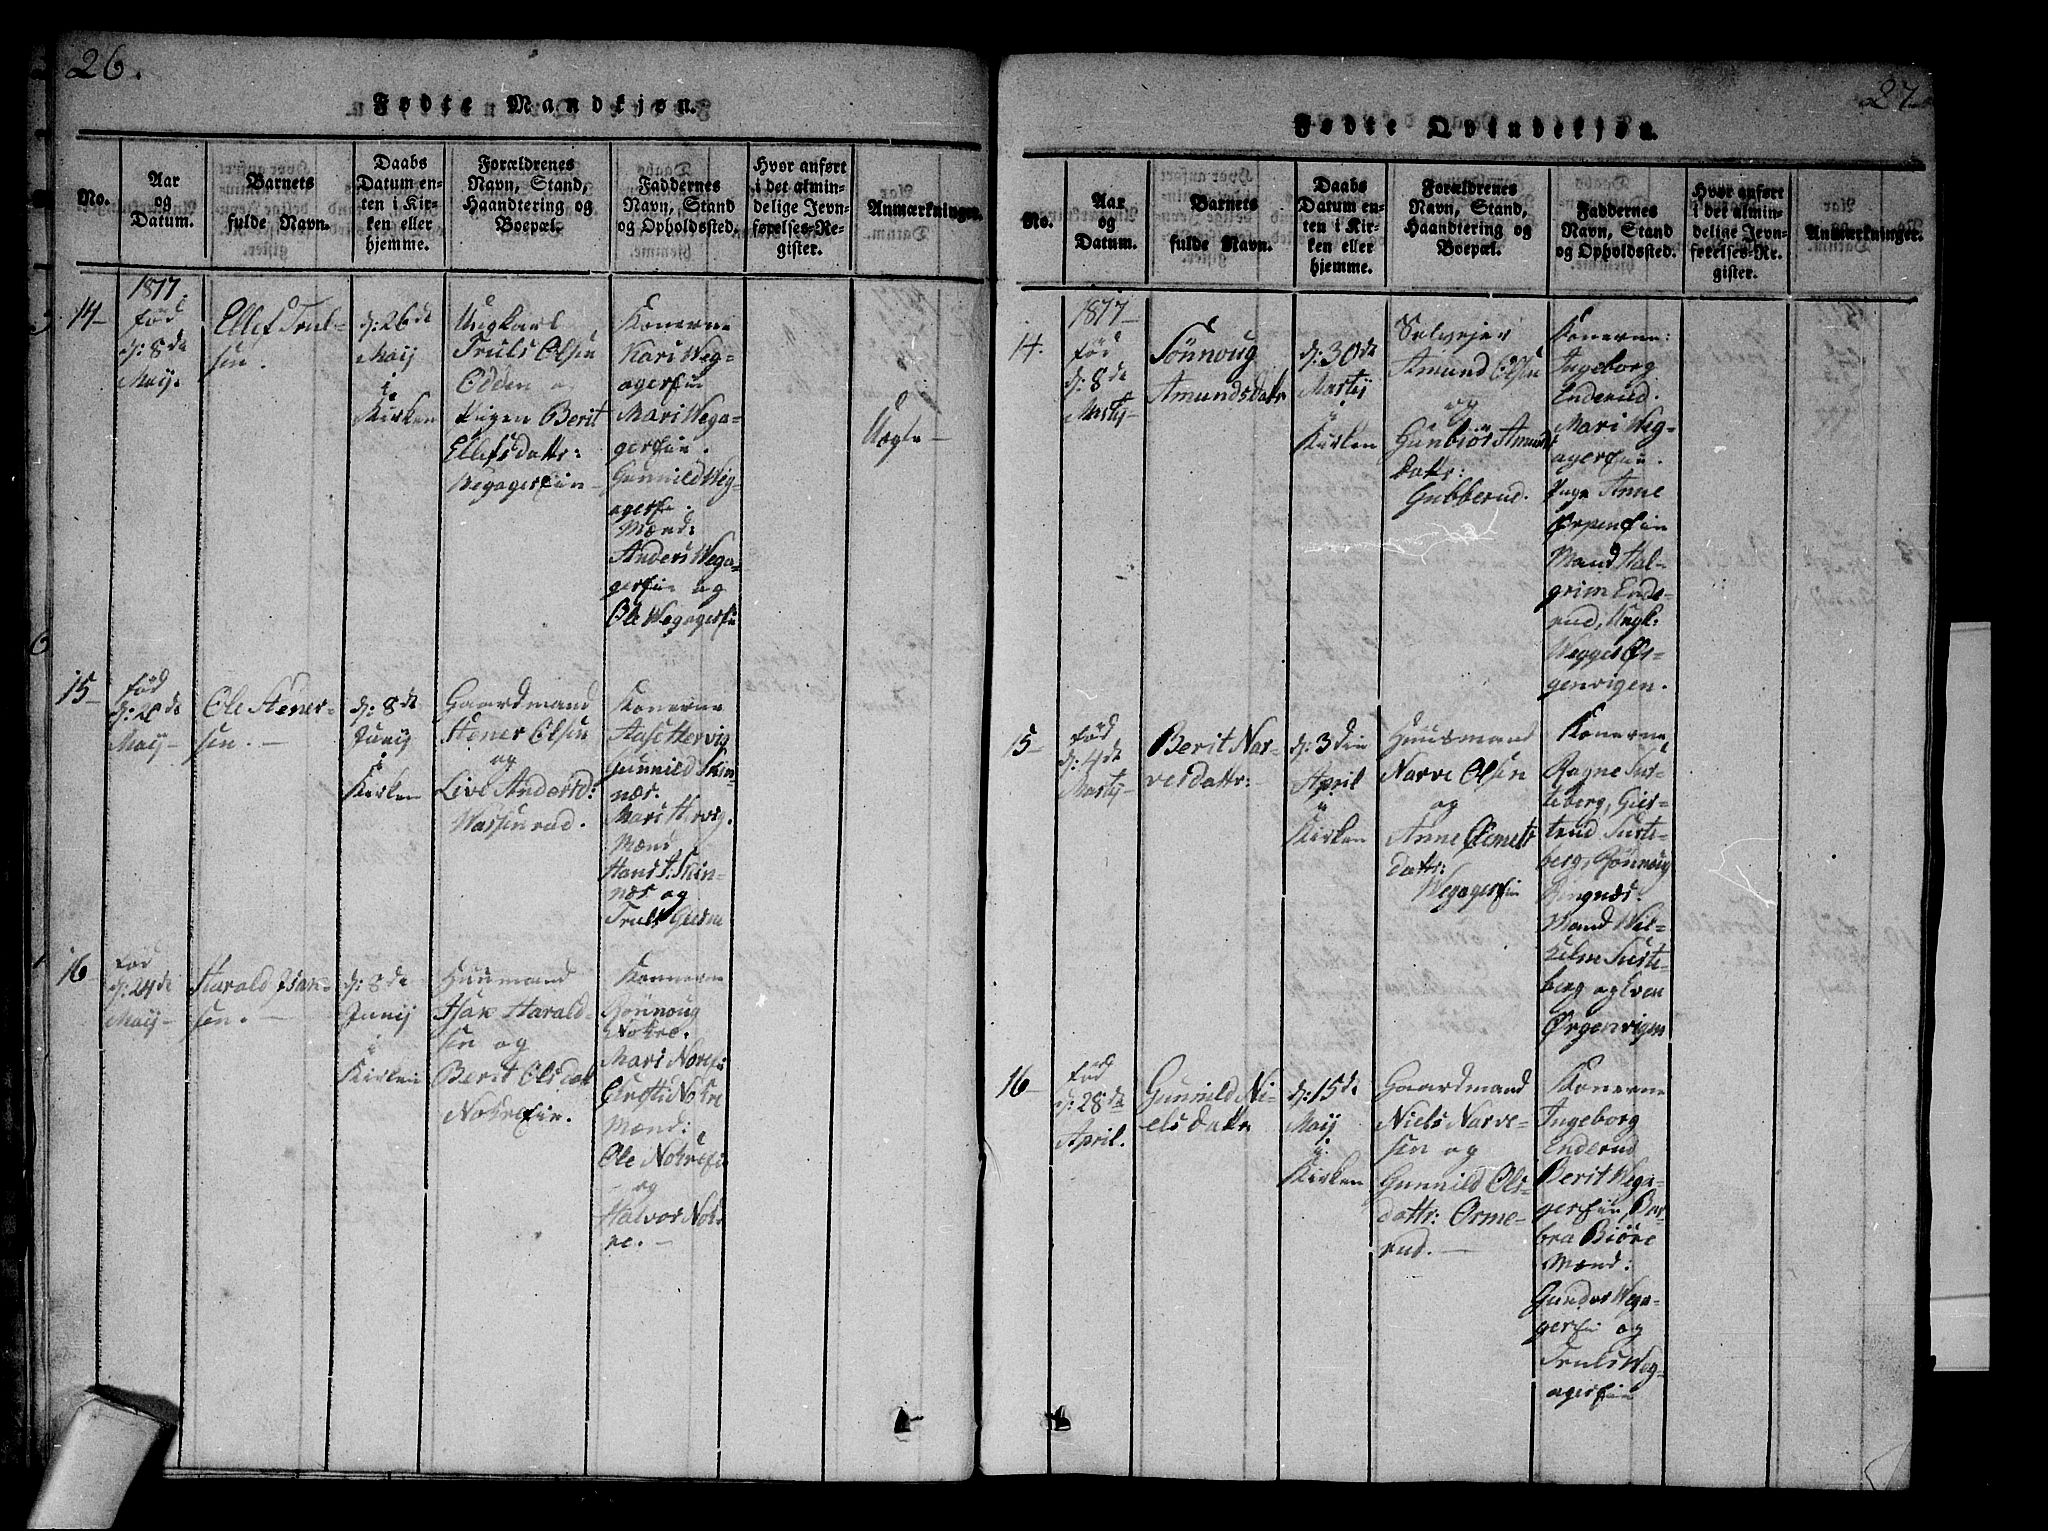 26.
Fødte Mandkjøn.
No.
Aar
og
Datum.
Barnets
fulde Navn.
Daabs
Datum en-
ten i Kir-
ken eller
hjemme.
Forældrenes
Navn, Stand,
Haandtering og
Boepæl.
Faddernes
Navn, Stand
og Opholdssted.
Hvor anført
i det almin-
delige Jevn-
førelses-Re-
gister.
Anmærkninger.
14-
1817.
fød
d: 8de
Maij.
Ellef Truls-
sen.
d: 26de
Maij
i
Kirken
Ungkarl
Truls Olsen
Odden og
Pigen Berit
Ellefsdattr:
Wegagerfin-
Konerne
Kari Weg-
agerfin
Mari Wega-
gerfin.
Gunnild Weg-
agerf.
Mænd:
Anders Wega-
gerfin og
Ole Wegagerfin
Uægte-
15-
fød
Maij-
Ole Stener-
sen.-
d: 8de
Junij
i
Kirken
Gaardmand
Stener Olsen
og
Live Andersd:
Konerne
Aase Hervig
Gunnild Skin-
næs.
Mari Hervig.
Mænd
Hans Skin-
næs og
Truls
16-
fød
d: 24de
Maij-
Harald Isak-
sen.-
d: 8de
Junij
i
Kirken
Huusmand
Isak Harald-
sen og
Berit Olsdatt
Nokrefin.
Konerne
Rønnoug
Nokre.
Mari Nokrefi
Kersti Nokre
Mænd:
Ole Nokrefi
- og
Halvor Nok-
re.-
27.
Fødte Qvindekjøn.
No.
Aar
og
Datum.
Barnets
fulde Navn.
Daabs
Datum en-
ten i Kir-
ken eller
hjemme.
Forældrenes
Navn, Stand,
Haandtering og
Boepæl.
Faddernes
Navn, Stand
og Opholdssted.
Hvor anført
i det almin-
delige Jevn-
førelses-Re-
gister.
Anmærkninger.
14.
1817-
fød
d: 8de
Martij-
Sønnoug
Amundsdattr
d: 30de
Martij
i
Kirken
Selvejer
Amund Olsen
og
Gunbiør Amunds
dattr:
Gubberud.
Konerne:
Ingeborg
Enderud.
Mari Weg-
agerfin.
Pige Anne
Ørpenfin
Mænd Hal-
grim Ende-
rud, Ungk:
Wegger Ør-
genvigen.
15-
fød
d: 4de
Martij-
Berit Nar-
vesdattr:
d: 3die
April
i
Kirken
Huusmand
Narve Olsen
og
Anne
dattr:
Wegagerfin
Konerne
Ragne Suste-
berg, Gier-
trud Suste-
berg, Rønnoug
Ringnæs.
Mænd Wil-
helm Suste-
berg og Even
Ørgenvigen
16-
fød
d: 28de
April.
Gunnild Ni-
elsdattr
d: 15de
Maij
i
Kirken
Gaardmand
Niels Narve-
sen og
Gunnild Ols-
dattr: Orme-
rud.-
Konerne
Ingeborg
Enderud
Berit Wega-
gerfin, Bar-
bra Biøre
Mænd:
Gunder Wega-
gerfi og
Truls Weg-
agerfin